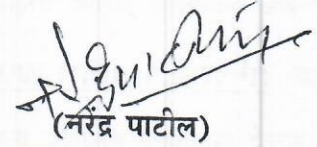 (नरेंद्र पाटील)